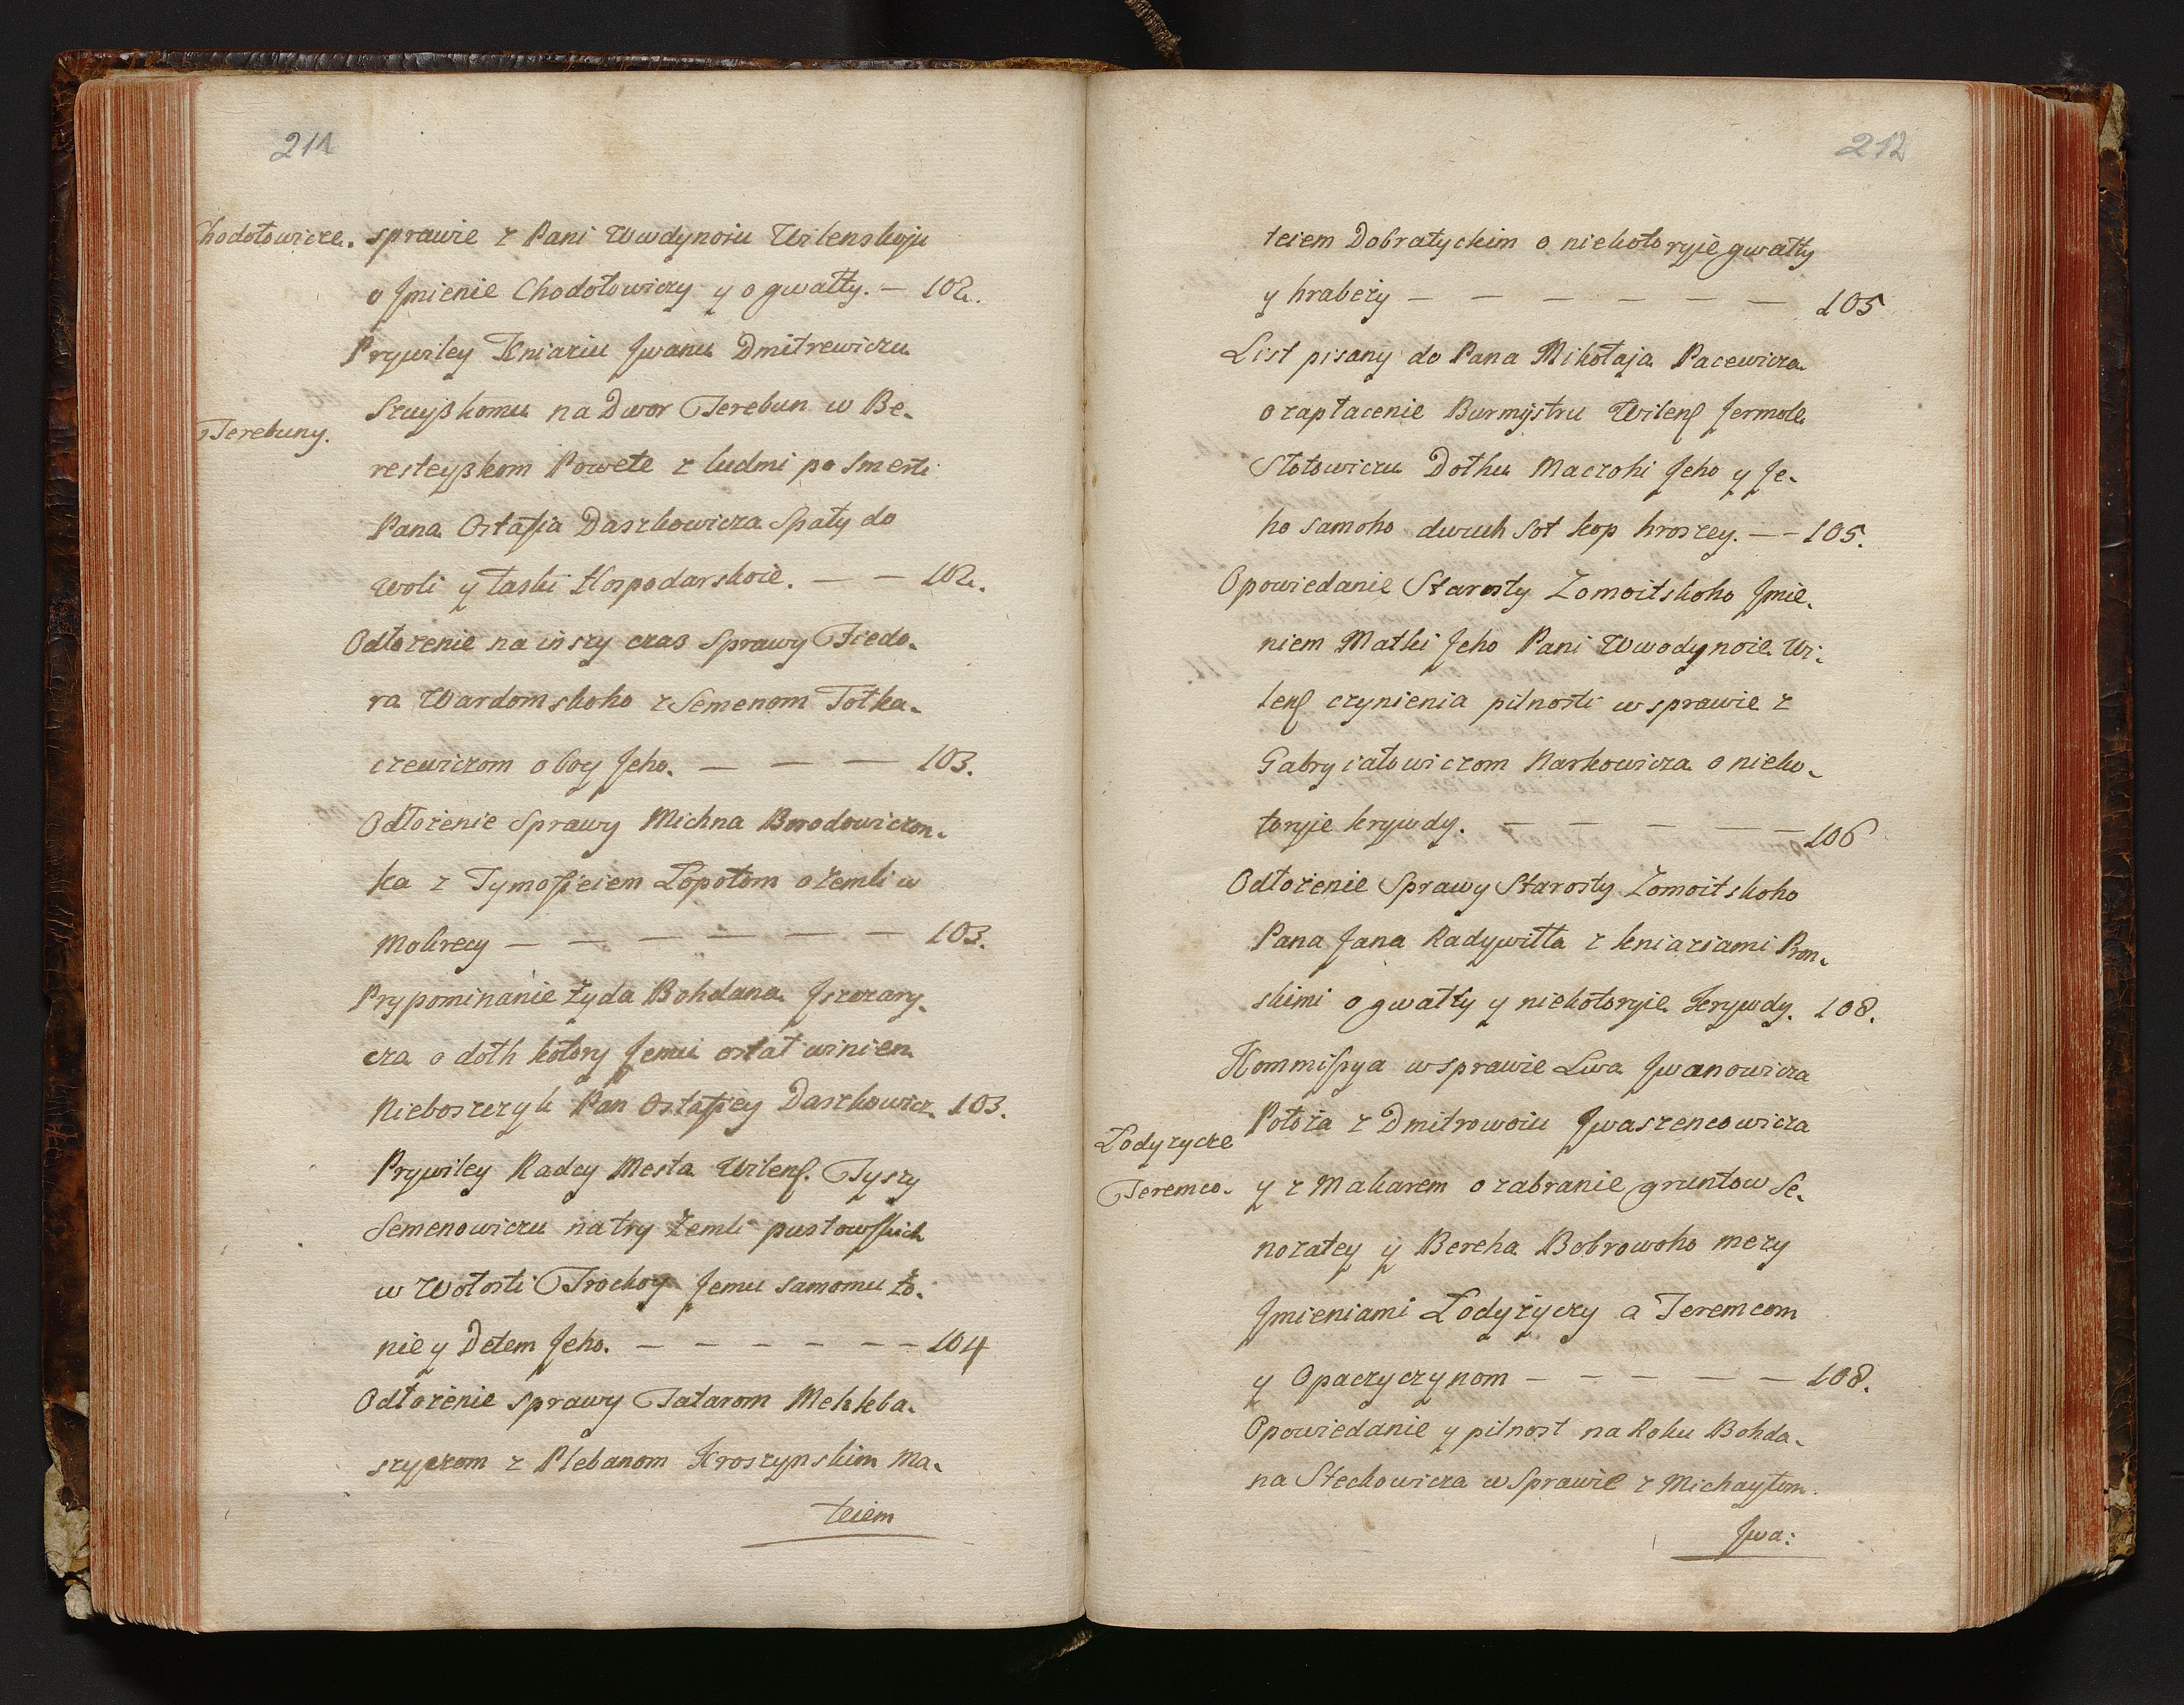 211
Chodołowicze. sprawie z Pani Wwdynoiu Wilenskoju
o Jmienie Chodołowiczy y o gwałty. — 102.
Prywiley Kniaziu Jwanu Dmitrewiczu
Szuyßkomu na Dwor Terebun w Be-
Terebuny.
resteyßkom Powete z ludmi po Smerti
Pana Ostafia Daszkowicza Spały do
Woli y łaski Hospodarskoie. — — 102.
Odłożenie na inszy czas Sprawy Fiedo-
ra Wardomskoho z Semenom Tołka-
czewiczom o boy Jeho. — — — 103.
Odłożenie Sprawy Michna Borodowiczon-
ka z Tymofieiem Łopotom o żemli w
Mokrecy — — — — — — 103.
Prypominanie Żyda Bohdana Jszczary-
cza o dołh kotory Jemu ostał winien
Nieboszczyk Pan Ostafiey Daszkowicz. 103.
Prywiley Radcy Mesta Wilenſ. Tyszy
Semenowiczu na try żemli pustowſkich
w Wołosti Trockoy Jemu samomu żo-
nie y Detem Jeho. — — — — — — 104
Odłożenie sprawy Tatarom Mekkba-
szyczom z Plebanom Kroszynskim Ma-
teiem
212
teiem Dobratyckim o niekotoryie gwałty
y hrabeży — — — — — — — 105
List pisany do Pana Mikołaja Pacewicza
o zapłacenie Burmystru Wilenſ Jermole
Stotowiczu Dołhu Maczohi Jeho y Je-
ho samoho dwuch sot kop hroszey. — — 105.
Opowiedanie Starosty Żomoitskoho Jmie-
niem Matki Jeho Pani Wwodynoie Wi-
lenſ czynienia pilnosti w sprawie z
Gabryiałowiczom Narkowicza o nieko-
toryie krywdy. — — — — — 106
Odłożenie Sprawy Starosty Żomoitskoho
Pana Jana Radywiłła z kniaziami Pron-
skimi o gwałty y niekotoryie krywdy. 108.
Kommiſsya w sprawie Lwa Jwanowicza
Położa z Dmitrowoiu Jwaszencowicza
Łodyzycze
Teremco. y z Makarem o zabranie gruntow Se-
nożatey y Bereha Bobrowoho mezy
Jmieniami Łodyżyczy a Teremcom
y Opaczyczynom — — — — — 108.
Opowiedanie y pilnost na Roku Bohda-
na Steckowicza w Sprawie z Michayłom
Jwa: